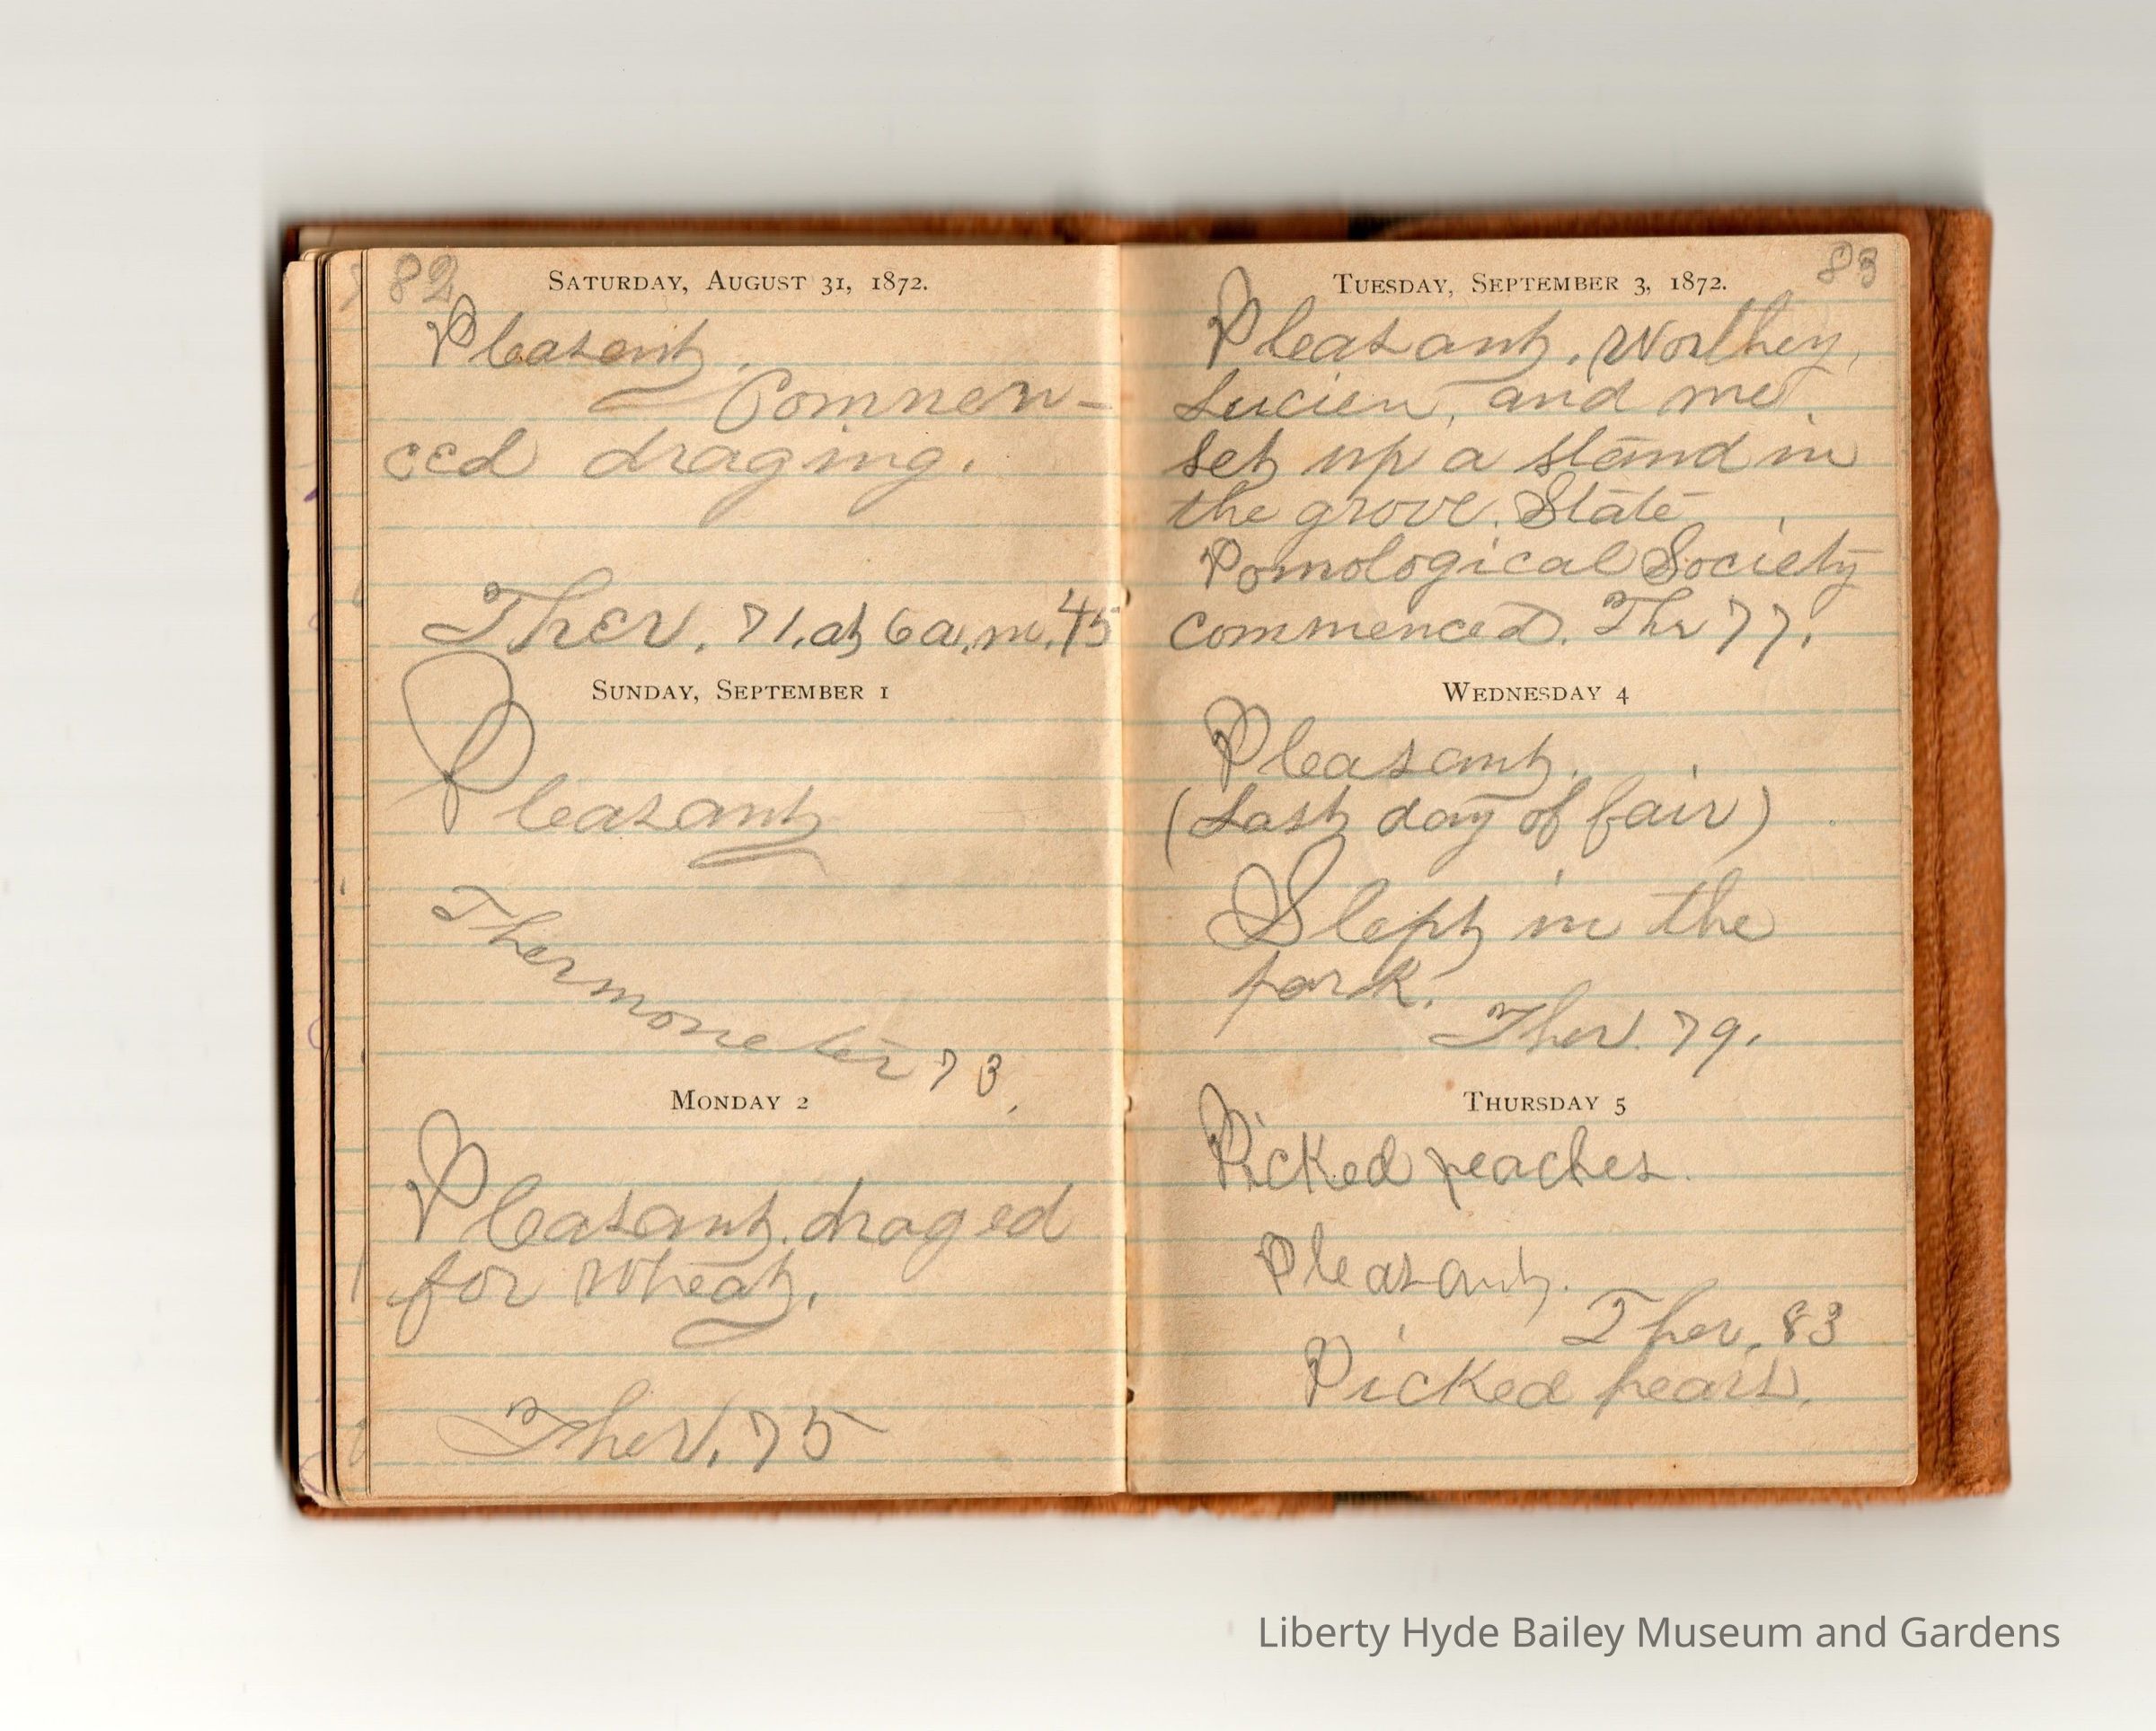 82
SATURDAY, AUGUST 31, 1872.
Pleasant.
Commen-
ced draging.
Ther. 71, at 6 a.m. 45
SUNDAY, SEPTEMBER 1
Pleasant
Thermometer 73.
MONDAY 2
Pleasant. draged
for Wheat.
Ther. 75
83
TUESDAY, SEPTEMBER 3, 1872.
Pleasant. Worthey,
Lucien, and me
set up a stand in
the grove. State
Pomological Society
commenced. Thr 77.
WEDNESDAY 4
Pleasant.
(Last day of fair)
Slept in the
park.
Ther. 79.
THURSDAY 5
Picked peaches.
Pleasant.
Ther. 83
Picked pears.
Liberty Hyde Bailey Museum and Gardens